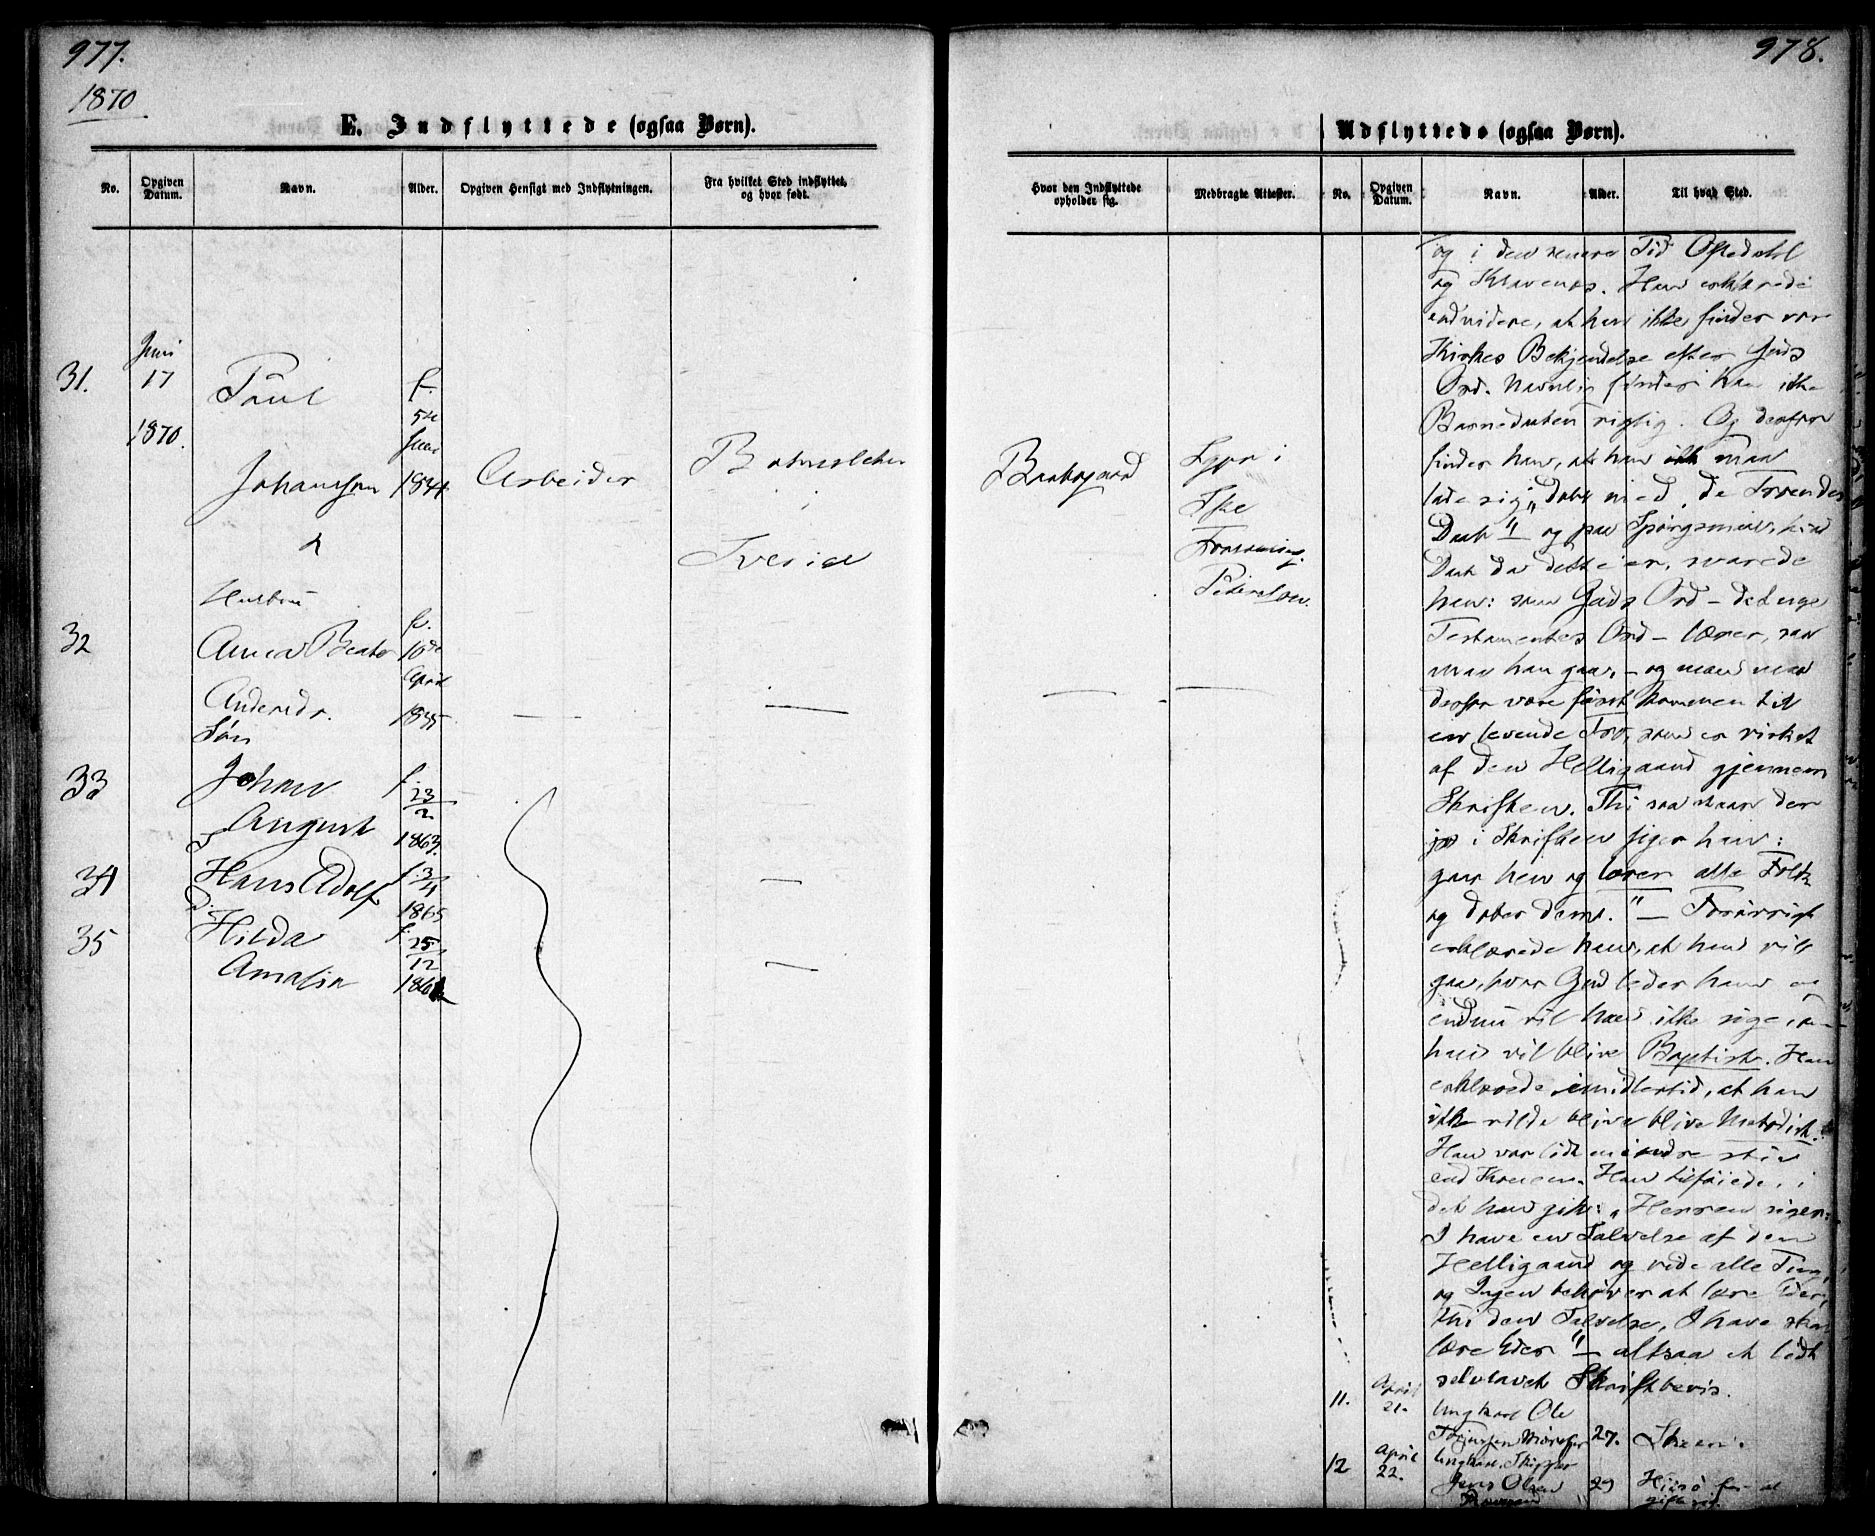 977.
1870
E. Indflyttede (ogsaa Børn).
No.
Opgiven Datum.
Navn.
Alder.
Opgiven Hensigt med Indflytningen.
Fra hvilket Sted indflyttet, og hvor født.
31.
Juni
17
1870.
Paul
Johansson
f.
5te
1834.
Arbeider
Sverige
&
Hustru
32
Anna Beate
Andersdr.
f.
10de
April
1835
Søn
33
Johan
August
f. 23/2
1863.
S
34
Hans Adolf
f. 3/4
1865
D.
35
Hilda
Amalia
f. 25/12
978.
Udflyttede (ogsaa Børn).
Hvor den Indflyttede opholder sig.
Medbragte Attester.
No.
Opgiven Datum.
Navn.
Alder.
Til hvad Sted.
og i den senere Tid Oftedahl
og Han erklærede
endvidere, at han ikke finder vor
Kirkes Bekjendelse efter Guds
Ord. Navnlig finder han ikke
Barnedaaben rigtig. Og derfor
finder han, at han maa
lade sig døbe med „de Troendes
Daab" og paa Spørgsmaal, hvad
Daab da dette er, svarede
han: som Guds Ord – det nye
Testamentes Ord – lærer, saa
maa han gaa, – og man maa
derfor være først kommen til
en levende Tro, som er virket
af den Helligaand gjennem
Skriften. Thi saa staar der
jo i Skriften siger han:
gaar hen og lærer alle Folk
og døber dem." – Forøvrigt
erklærede han, at han vil
gaa, hvor Gud leder ham og
endnu vil han ikke sige, om
han vil blive Baptist. Han
erklærede imidlertid, at han
ikke vilde blive blive Methodist.
Han var lidt mindre stiv
end Konen. Han tilføiede, i
det han gik: „Herren siger:
I have en Salvelse af den
Helligaand og vide alle Ting,
og Ingen behøver at lære Eder,
thi den Salvelse, I have skal
lære Eder" – altsaa et lidt
selvlavet Skriftbevis.
11.
April
21.
Ungkarl Ole
27.
Skien.
12
April
22.
Ungkarl, Skipper
Jens Olsen
29
Hisø for at
gifte sig.